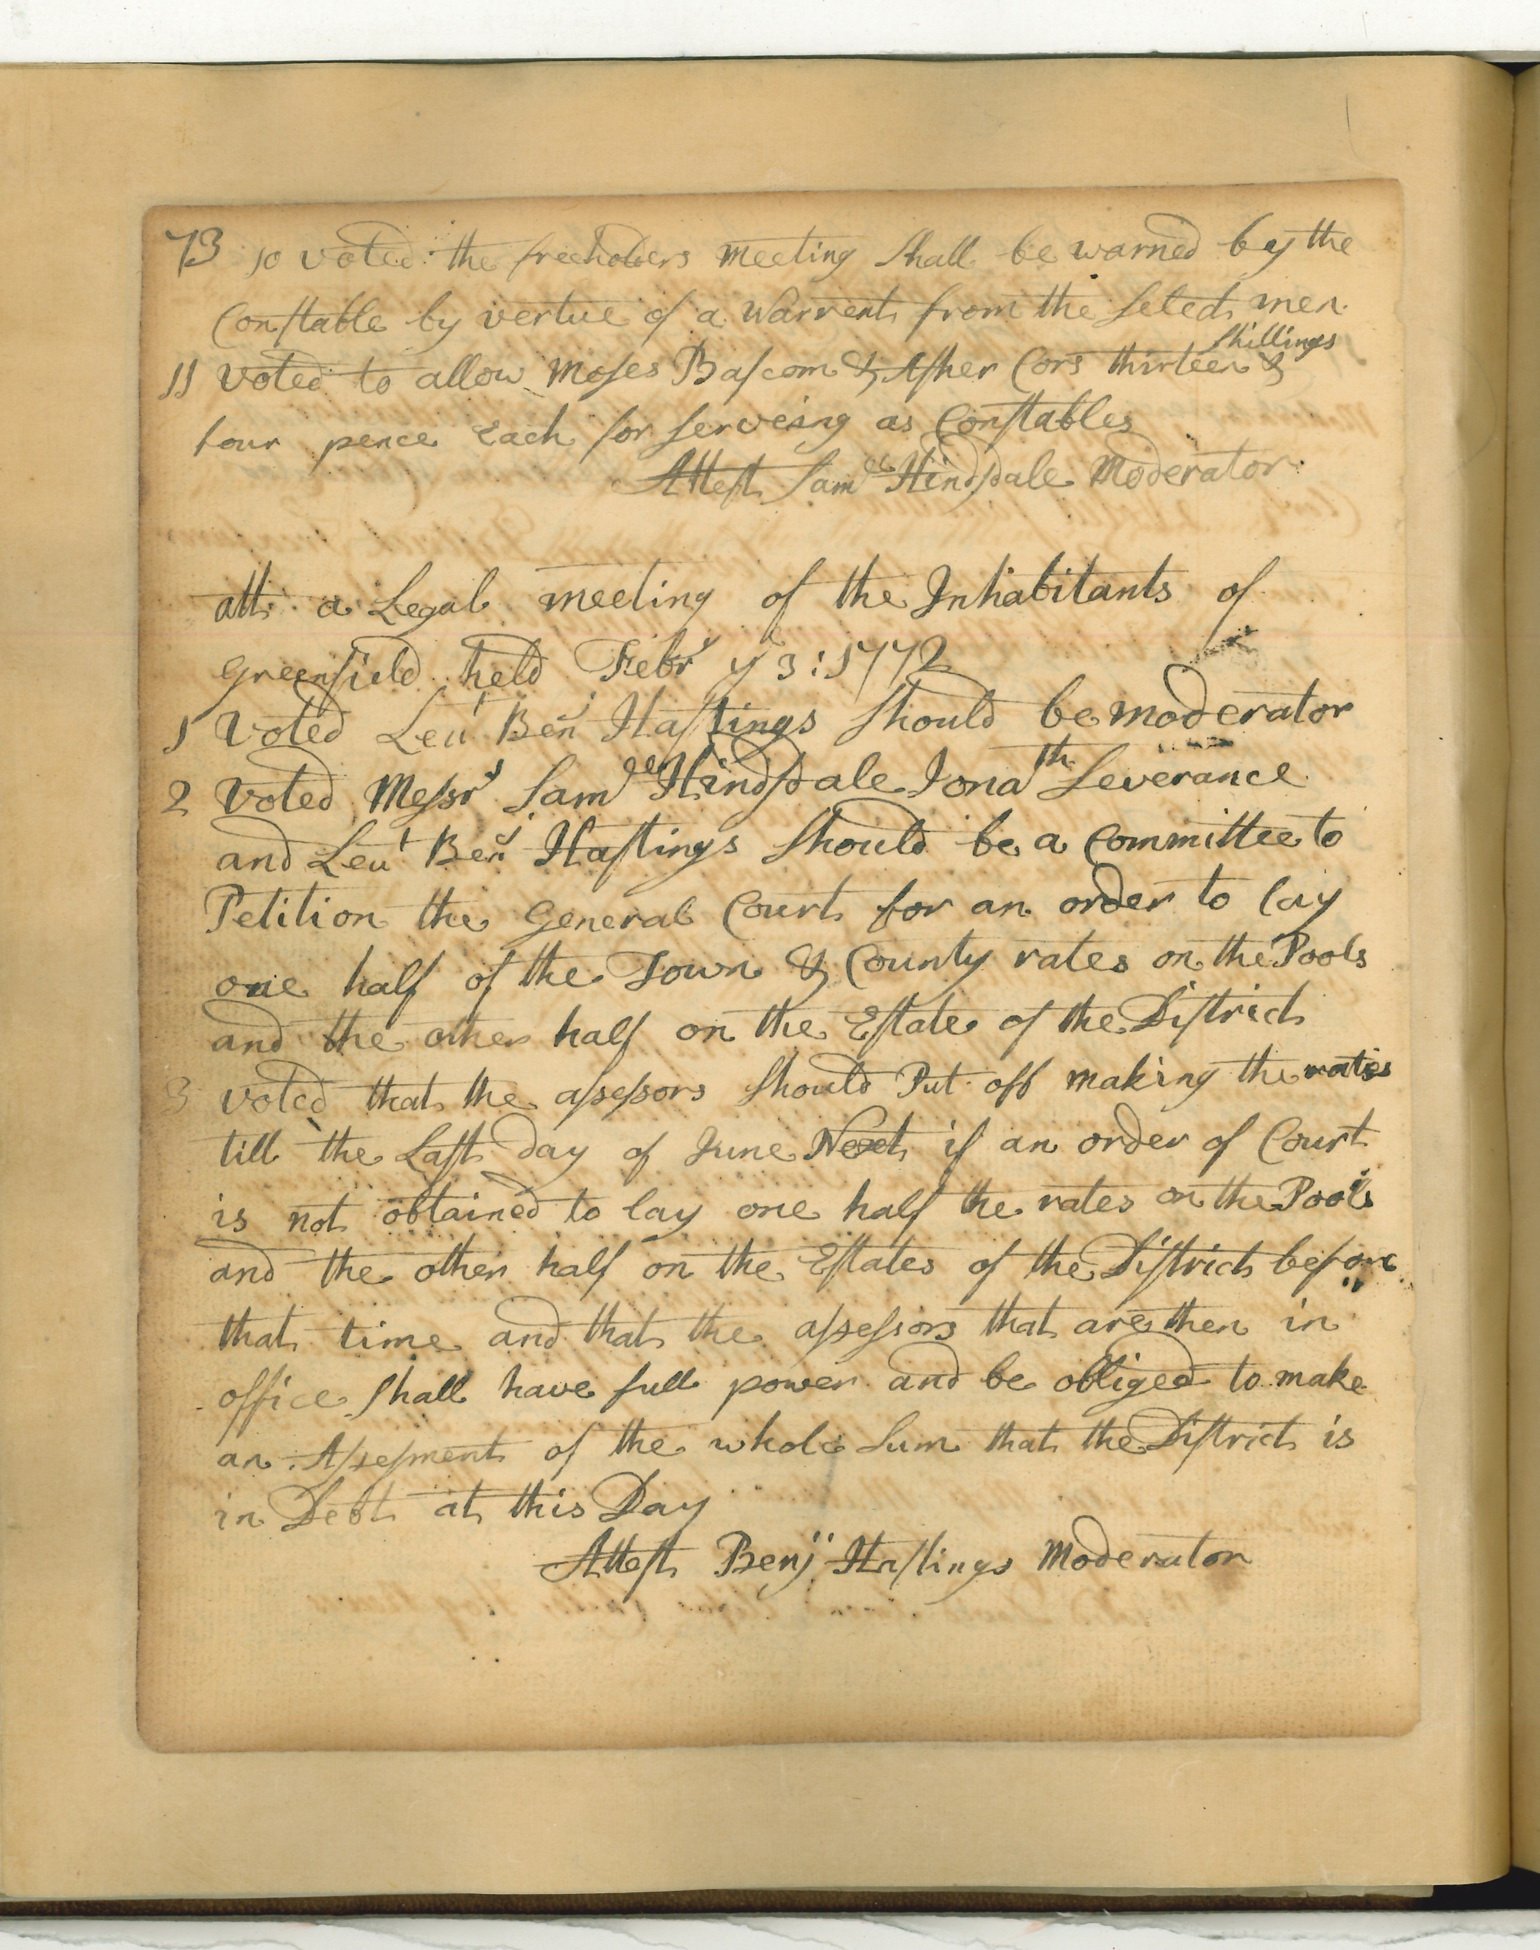 73 10 voted the freeholders meeting shall be warned by the
Constable by vertue of a warrent from the select men
shillings
11 voted to allow Moses Bascom & Asher Cors thirteen &
four pence Each for serveing as Constables
Attest Samll Hindsdale Moderator
att a Legal meeting of the Inhabitants of
Greenfield held Febry y 3:1772
1 voted Leut Benj Hastings should be moderator
2 voted Messrs Samll Hindsdale Jonath Severance
and Leut Benj Hastings should be a Committee to
Petition the General Court for an order to lay
one half of the Town & County rates on the Pools
and the other half on the Estate of the District
3 voted that the assessors should Put off making the rates
till the Last day of June Next if an order of Court
is not obtained to lay one half the rates on the Pools
and the other half on the Estates of the District before
that time and that the assessors that are then in
office shall have full power and be obliged to make
an Assessment of the whole sum that the District is
in Debt at this Day
Attest Benj Hastings Moderator